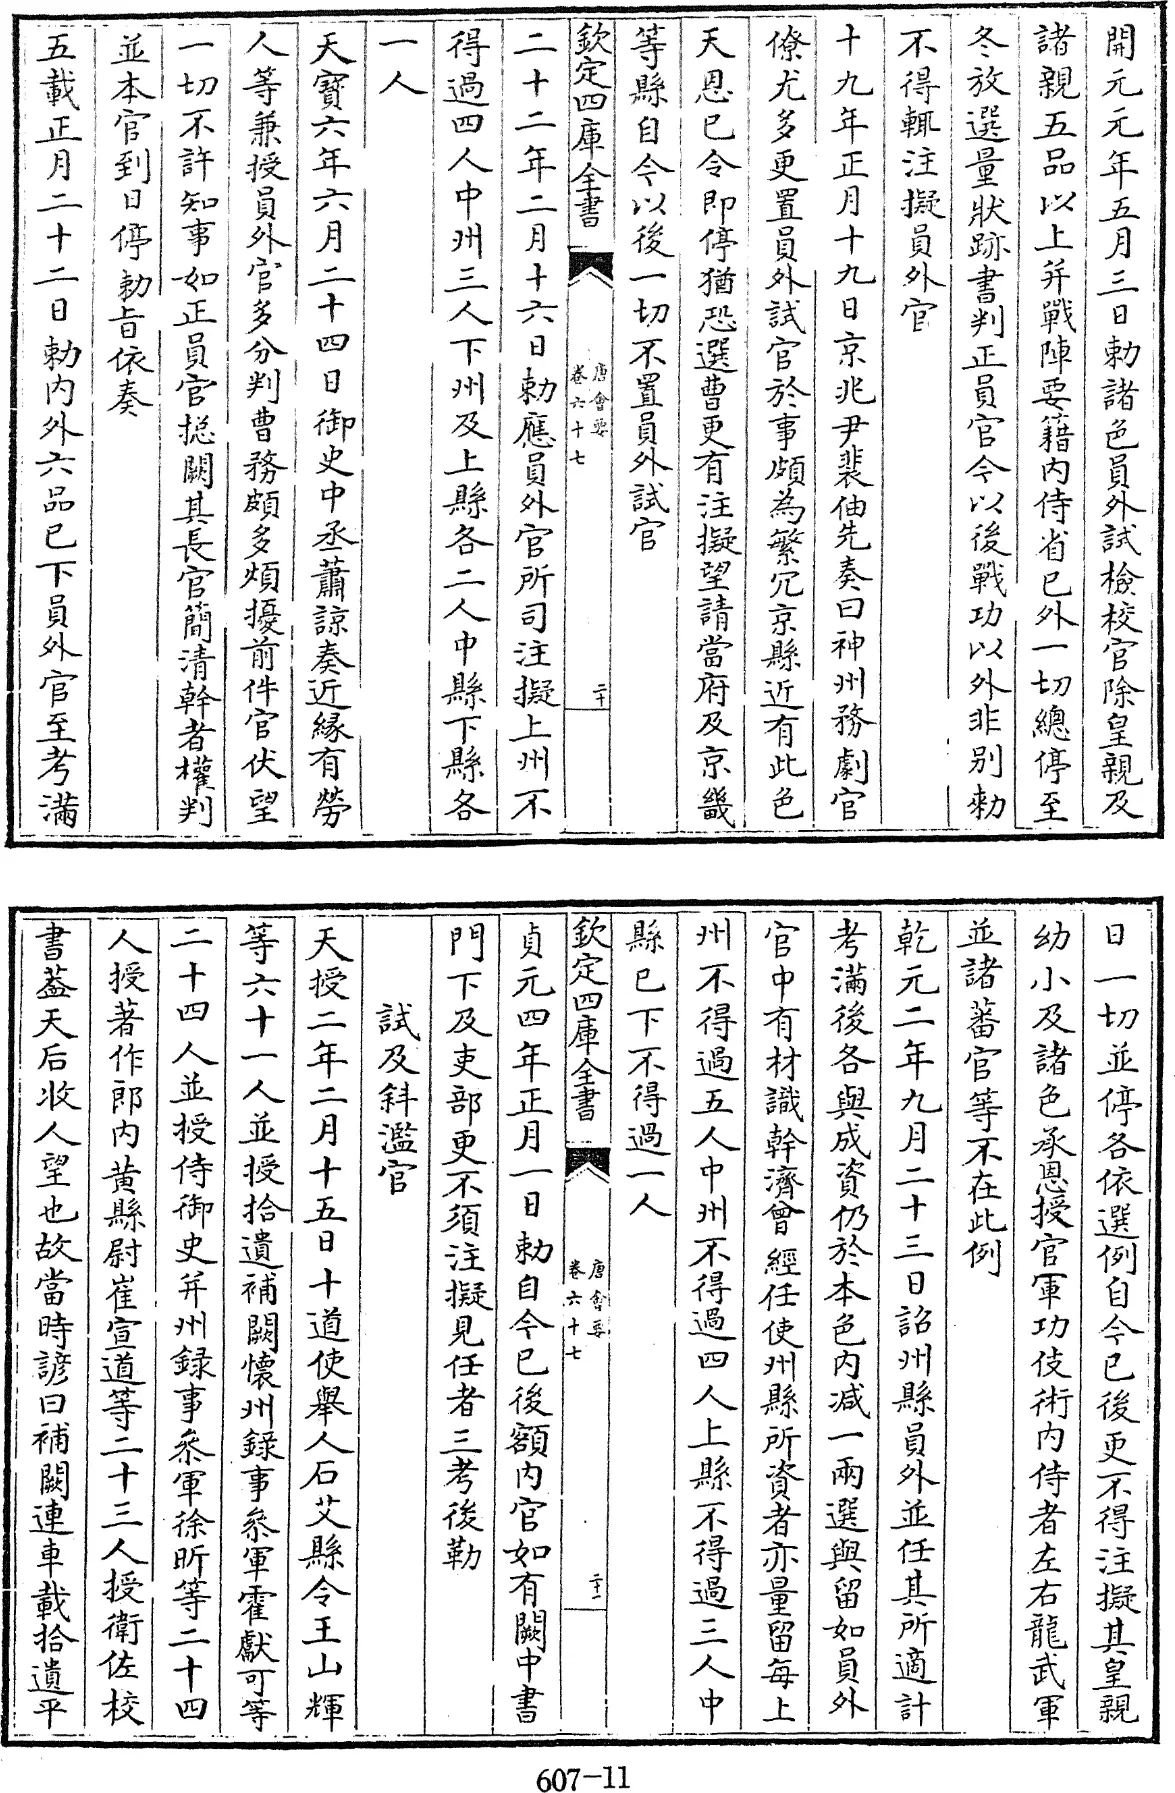 開元元年五月三日勅諸色員外試檢校官除皇親及
諸親五品以上并戰陣要籍內侍省已外一切總停至
冬放選量狀跡書判正員官今以後戰功以外非别勅
不得輒注擬員外官
十九年正月十九日京兆尹裴伷先奏曰神州務劇官
僚尤多更置員外試官於事頗為繁冗京縣近有此色
天恩已令即停猶恐選曹更有注擬望請當府及京畿
等縣自今以後一切不置員外試官
欽定四庫全書
唐會要
卷六十七
二十
二十二年二月十六日勅應員外官所司注擬上州不
得過四人中州三人下州及上縣各二人中縣下縣各
一人
天寳六年六月二十四日御史中丞蕭諒奏近緣有勞
人等兼授員外官多分判曹務頗多煩擾前件官伏望
一切不許知事如正員官揔闕其長官簡清幹者權判
並本官到日停勅旨依奏
五載正月二十二日勅內外六品已下員外官至考滿
日一切並停各依選例自今已後更不得注擬其皇親
幼小及諸色承恩授官軍功伎術內侍者左右龍武軍
並諸蕃官等不在此例
乾元二年九月二十三日詔州縣員外並任其所適計
考滿後各與成資仍於本色內减一兩選與留如員外
官中有材識幹濟曾經任使州縣所資者亦量留每上
州不得過五人中州不得過四人上縣不得過三人中
縣已下不得過一人
欽定四庫全書
唐會要
卷六十七
二十一
貞元四年正月一日勅自今已後額內官如有闕中書
門下及吏部更不須注擬見任者三考後勒
試及斜濫官
天授二年二月十五日十道使舉人石艾縣令王山輝
等六十一人並授拾遺補闕懷州録事參軍霍獻可等
二十四人並授侍御史并州録事參軍徐昕等二十四
人授著作郎內黄縣尉崔宣道等二十三人授衛佐校
書葢天后收人望也故當時諺曰補闕連車載拾遺平
607-11